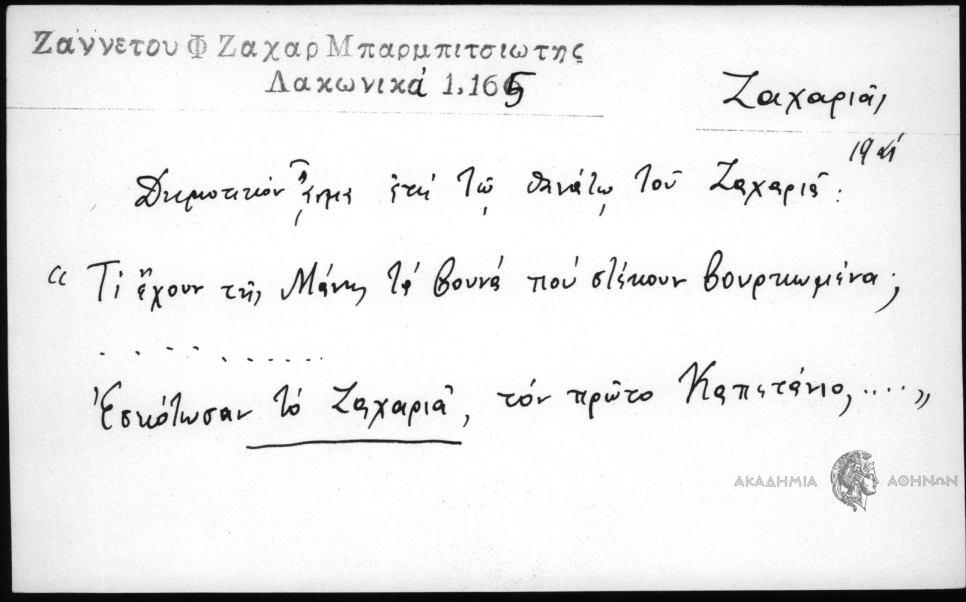 Ζαννετου Φ Ζαχαρ Μπαρμπιτσιωτης
Λακωνικά 1.165
Ζαχαριᾶς
Δημοτικόν ᾆσμα ἐπί τῷ θανάτῳ τοῦ Ζαχαριᾶ:
“ Τί ἔχουν τῆς Μάνης τά βουνά πού στέκουν βουρκωμένα;
. . . . . . . . . . .
Ἐσκότωσαν τό Ζαχαριᾶ, τόν πρῶτο Καπετάνιο, ....„
ΑΚΑΔΗΜΙΑ ΑΘΗΝΩΝ